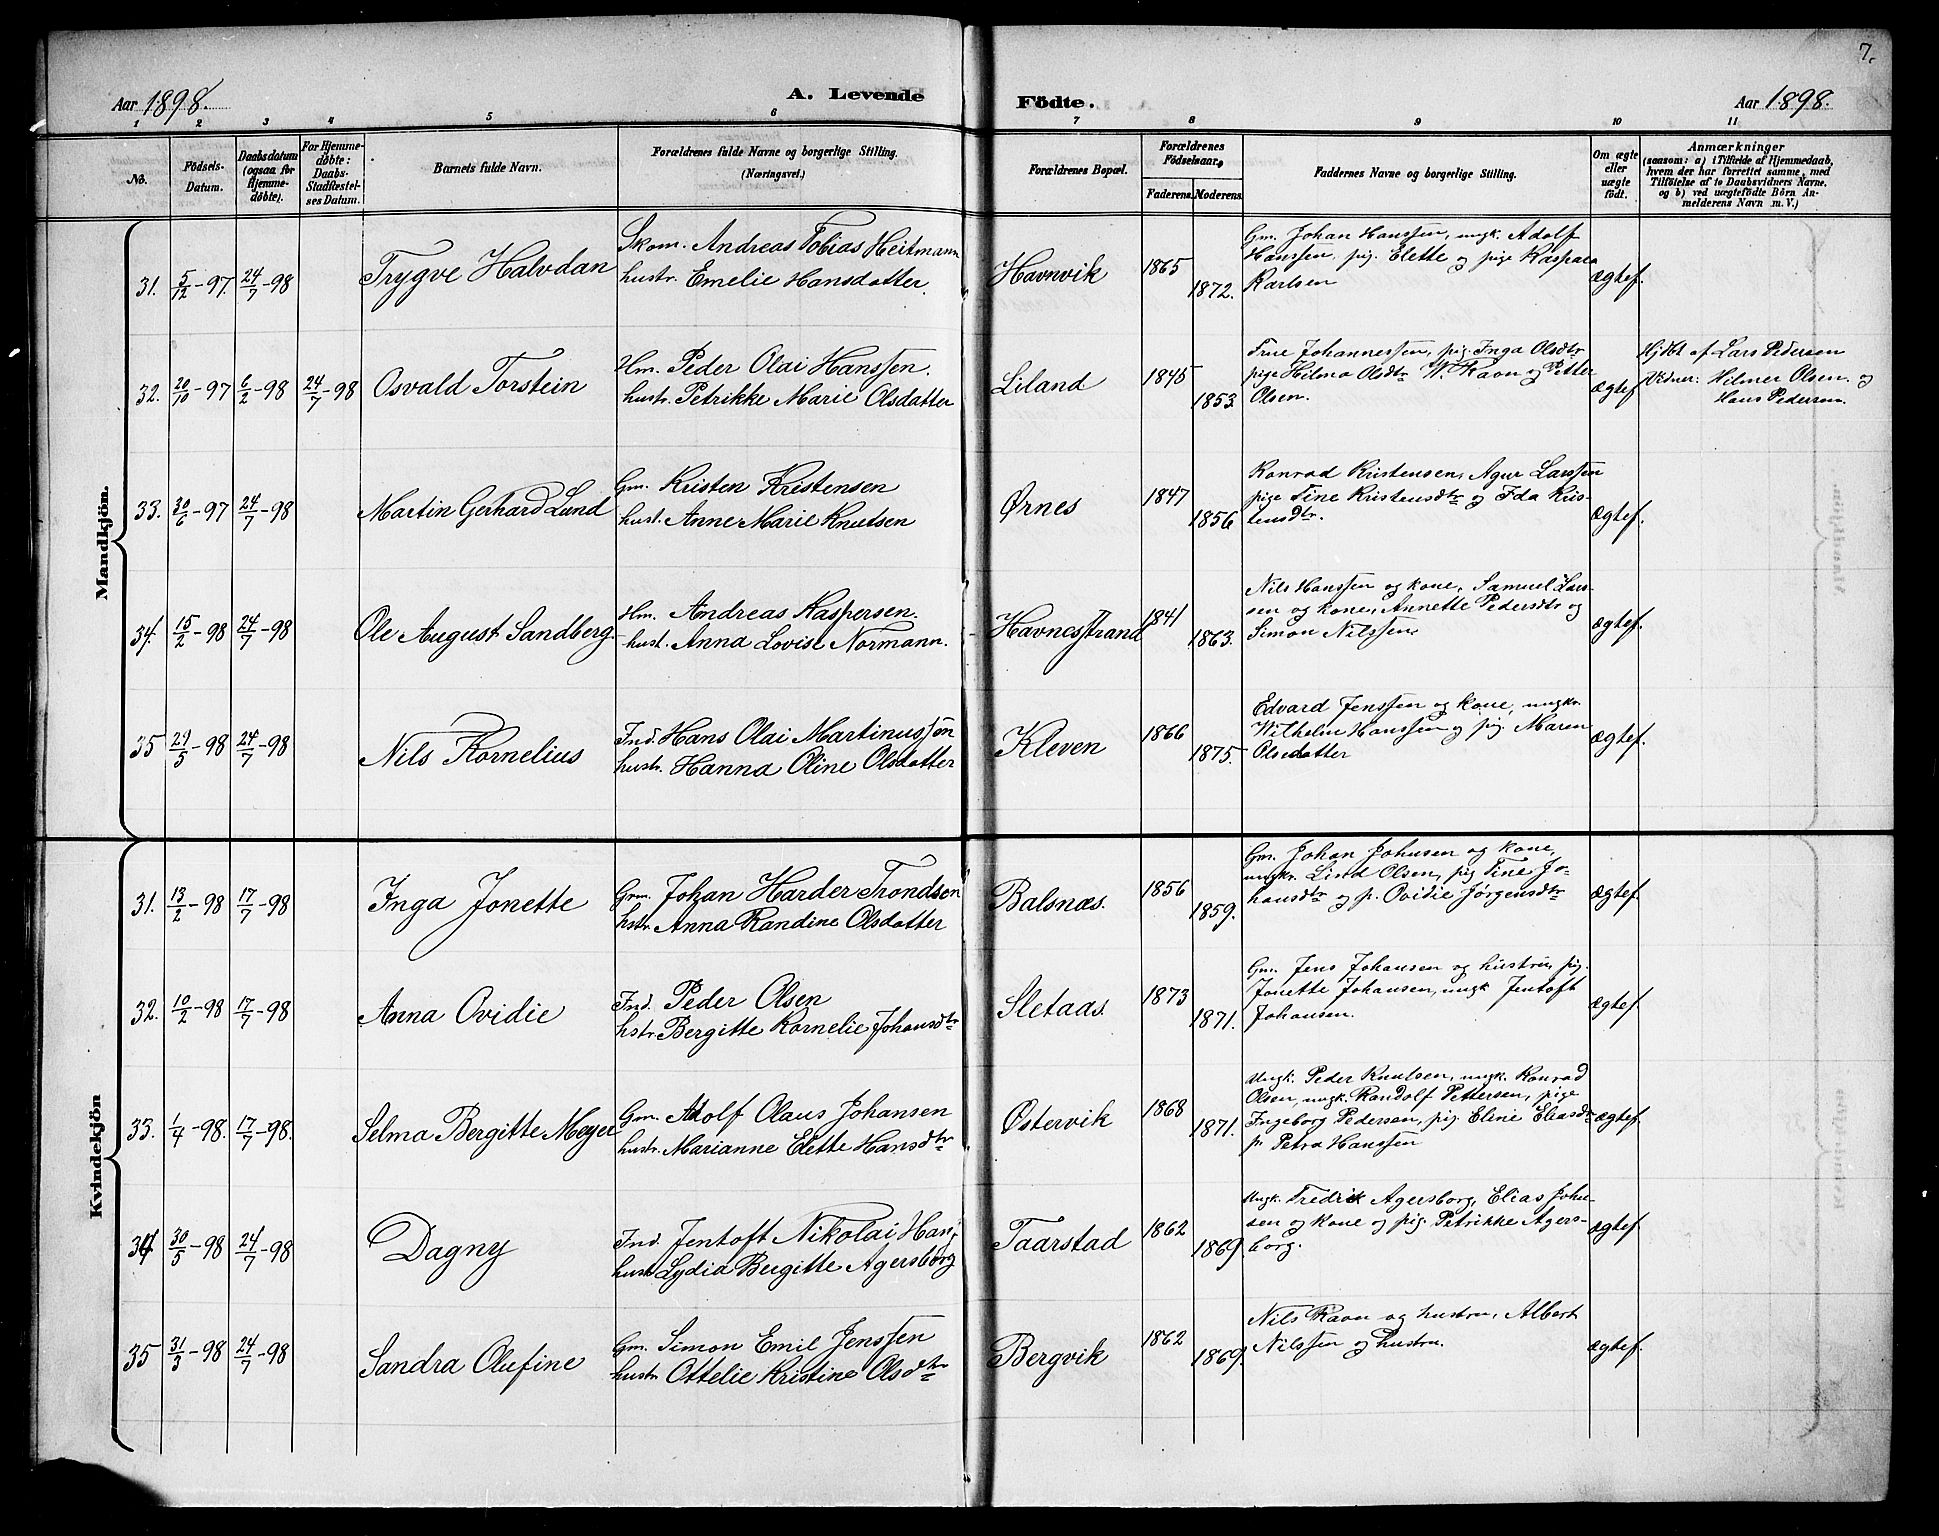 7.
Aar 1898. A. Levende Födte. Aar 1898.
1 2 3 4 5 6 7 8 9 10 11
No. Födsels-Datum. Daabsdatum (ogsaa for Hjemme-døbte). For Hjemme-døbte: Daabs-Stadfæstel-ses Datum. Barnets fulde Navn. Forældrenes fulde Navne og borgerlige Stilling. (Næringsvei.) Forældrenes Bopæl. Forældrenes Födselsaar. Faderens. Moderens. Faddernes Navne og borgerlige Stilling. Om ægte eller uægte födt. Anmærkninger (saasom: a) i Tilfælde af Hjemmedaab, hvem der har forrettet samme, med Tilföielse af to Daabsvidners Navne, og b) ved uægtefödte Börn An-melderens Navn m. V.)
Mandkjön.
31. 5/12-97. 24/7-98 Trygve Halvdan
Skom. Andreas Tobias Heitmann
hustr. Emelie Hansdatter.
Havnvik 1865 1872.
Gm. Johan Hanssen, ungk. Adolf
Hanssen, pig. Elette og pige Kaspara
Karlsen
ægtef.
32. 20/10-97 6/2-98 24/7-98 Osvald Torstein
Hm. Peder Olai Hanssen.
hustr. Petrikke Marie Olsdatter
Liland 1845 1853
Frue Johannessen, pig. Inga Olsdtr
pige Hilma Olsdtr W. Ravn og Petter
Olsen.
ægtef
Hjdbt af Lars Pedersen
Vidner: Hilmer Olsen og
Hans Pedersen.
33. 30/6-97 24/7-98 Martin Gerhard Lund
Gm. Kristen Kristensen
hust. Anne Marie Knutsen
Ørnes 1847 1856
Konrad Kristensen, Agur Larssen
pige Tine Kristensdtr og Ida Kris-
tensdtr.
ægtef.
34. 15/2-98 24/7-98 Ole August Sandberg
Hm. Andreas Kaspersen.
hust. Anna Lovise Normann.
Havnesstrand 1841 1863.
Nils Hanssen og kone, Samuel Lars-
sen og kone, Annette Pedersdtr og
Simon Nilssen
ægtef.
35 29/5-98 24/7-98 Nils Kornelius
Ind. Hans Olai Martinussen
hustr. Hanna Oline Olsdatter
Kleven 1866 1875.
Edvard Jenssen og kone, ungkr.
Wilhelm Hanssen og pig. Maren
Olsdatter
ægtef.
Kvindekjön
31. 13/2-98 17/7-98 Inga Jonette
Grm. Johan Harder Trondsen
hstr. Anna Randine Olsdatter
Balsnæs. 1856 1859.
Gm. Johan Johnsen og kone,
ungkr. Lind Olsen, pig Tine Jo-
hansdtr og p. Ovidie Jørgensdtr
ægtef.
32. 10/2-98 17/7-98 Anna Ovidie
Ind. Peder Olsen
hstr. Bergitte Kornelie Johansdtr
Sletaas. 1873 1871.
Gm. Jens Johansen og hustru, pig.
Jonette Johansen, ungk Jentoft
Johansen.
ægtef.
33. 1/4-98. 17/7-98. Selma Bergitte Meyer
Gm. Adolf Olaus Johansen
hustr. Marianne Elette Hansdtr
Østervik 1868 1871.
Ungk. Peder Knutsen, ungk. Konrad
Olsen, ungk. Randolf Pettersen, pige
Ingeborg Pedersen, pig. Eline Eliasdtr
p. Petra Hanssen
ægtef.
34 30/5-98 24/7-98 Dagny
Ind. Jentoft Nikolai Han,
hustr Lydia Bergitte Agersborg
Taarstad 1862 1869
Ungk. Fredrik Agersborg, Elias John-
sen og kone og pig. Petrikke Agers-
borg.
ægtef.
35 31/3-98 24/7-98 Sandra Olufine
Gm. Simon Emil Jenssen
hustr. Ottelie Kristine Olsdtr
Bergvik 1862 1869.
Nils Ravn og hustru, Albert
Nilssen og hustru.
ægtef.